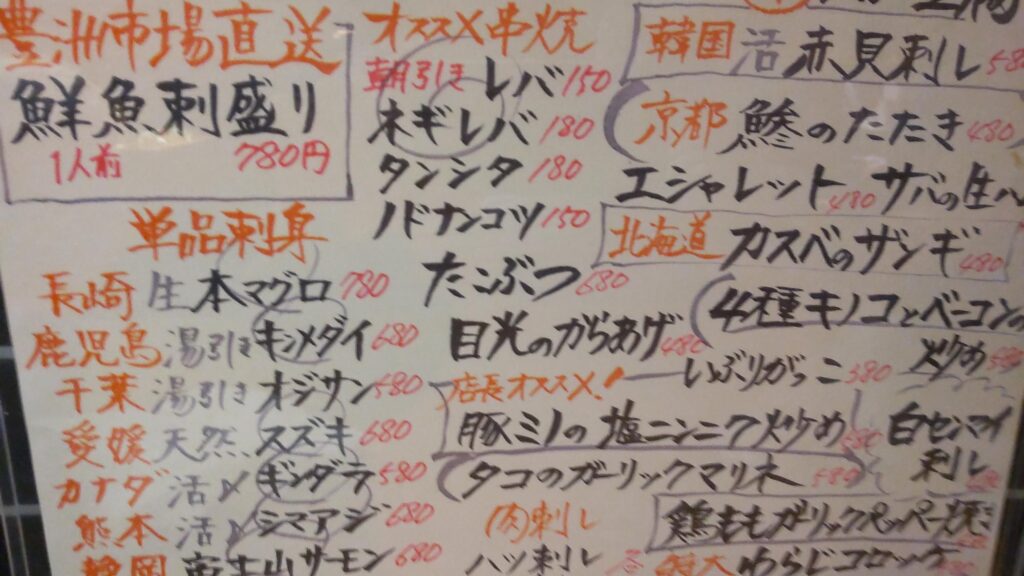 豊洲市場直送
鮮魚刺盛り
1人前 780円
単品刺身
長崎 生 本マグロ 780
鹿児島 湯引き キンメダイ 680
千葉 湯引き オジサン 580
愛媛 天然 スズキ 680
カナダ 活〆 ギンダラ 580
熊本 活〆 シマアジ 680
静岡 富士山サーモン 680
オススメ串焼
朝引き レバ 150
ネギレバ 180
タンシタ 180
ノドナンコツ 150
たこぶつ 680
目光のからあげ 480
店長オススメ! いぶりがっこ 380
豚ミノの塩ニンニク炒め 580
タコのガーリックマリネ 580
肉刺し
ハツ刺し
韓国 活 赤貝刺し 580
京都 鯵のたたき 480
エシャレット 480
サバの生ハ
北海道 カスベのザンギ 480
4種キノコとベーコンの
炒め 580
白センマイ
刺し
鶏ももガーリックペッパー焼き
特大 わらじコロッケ